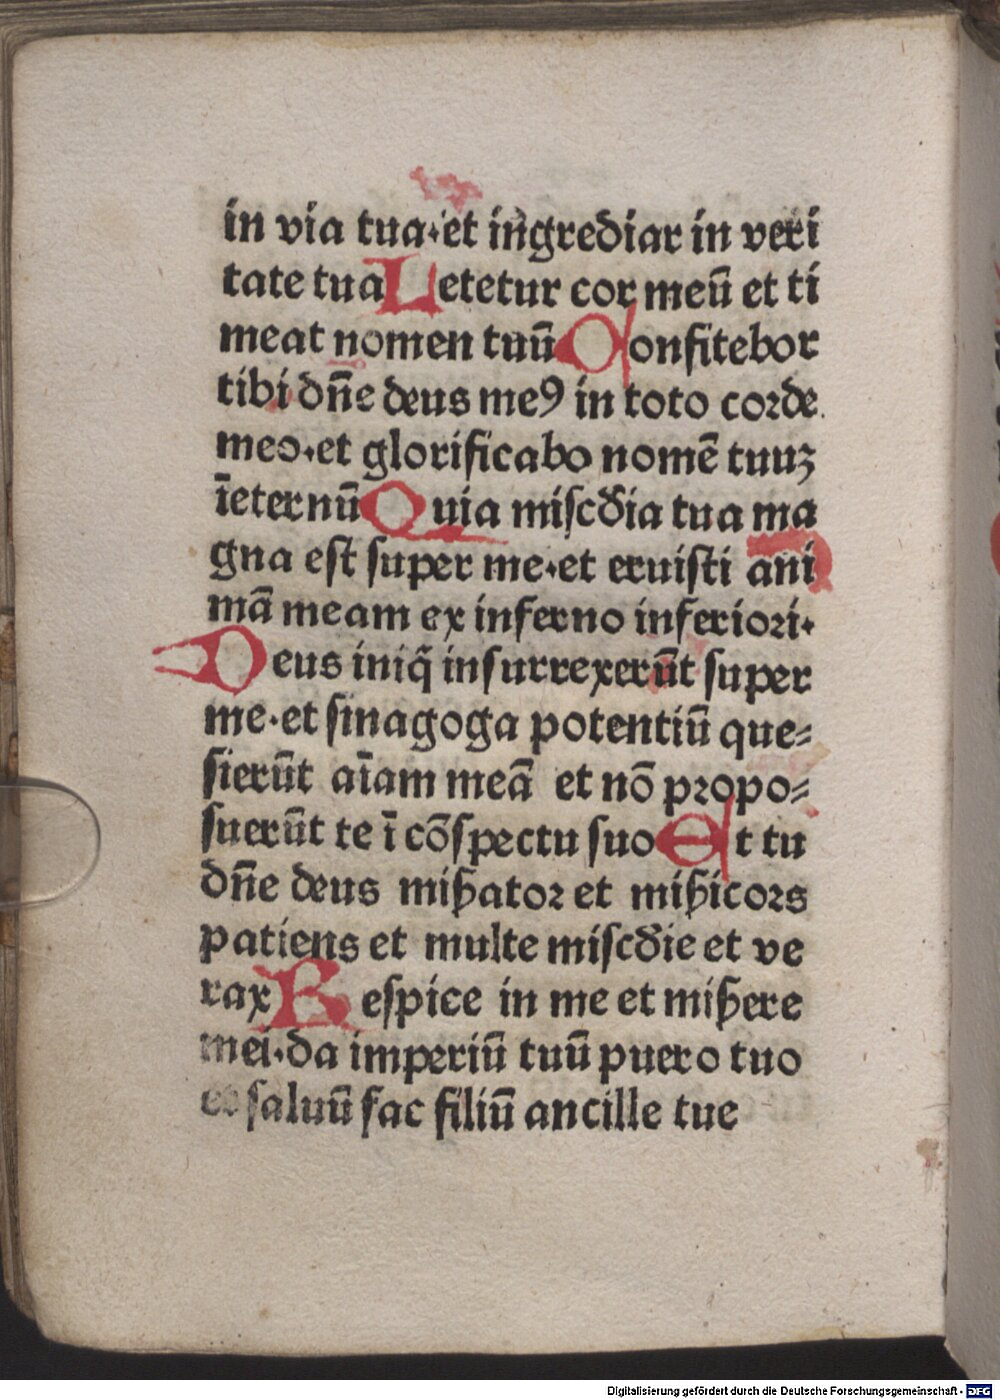 in via tua·et ingrediar in veri
tate tua Letetur cor meū et ti
meat nomen tuū Confitebor
tibi dn̄e deus meꝰ in toto corde
meo·et glorificabo nomē tuuꝫ
īeternū Quia miscd̄ia tua ma
gna est super me·et eruisti ani
mā meam ex inferno inferiori·
Deus iniq̄ insurrexerūt super
me·et sinagoga potentiū que⸗
sierūt aīam meā et nō propo⸗
suerūt te ī cōspectu suo Et tu
dn̄e deus miẜator et miẜicors
patiens et multe miscd̄ie et ve
rax Respice in me et miẜere
mei·da imperiū tuū puero tuo
et saluū fac filiū ancille tue
Digitalisierung gefördert durch die Deutsche Forschungsgemeinschaft - DFG